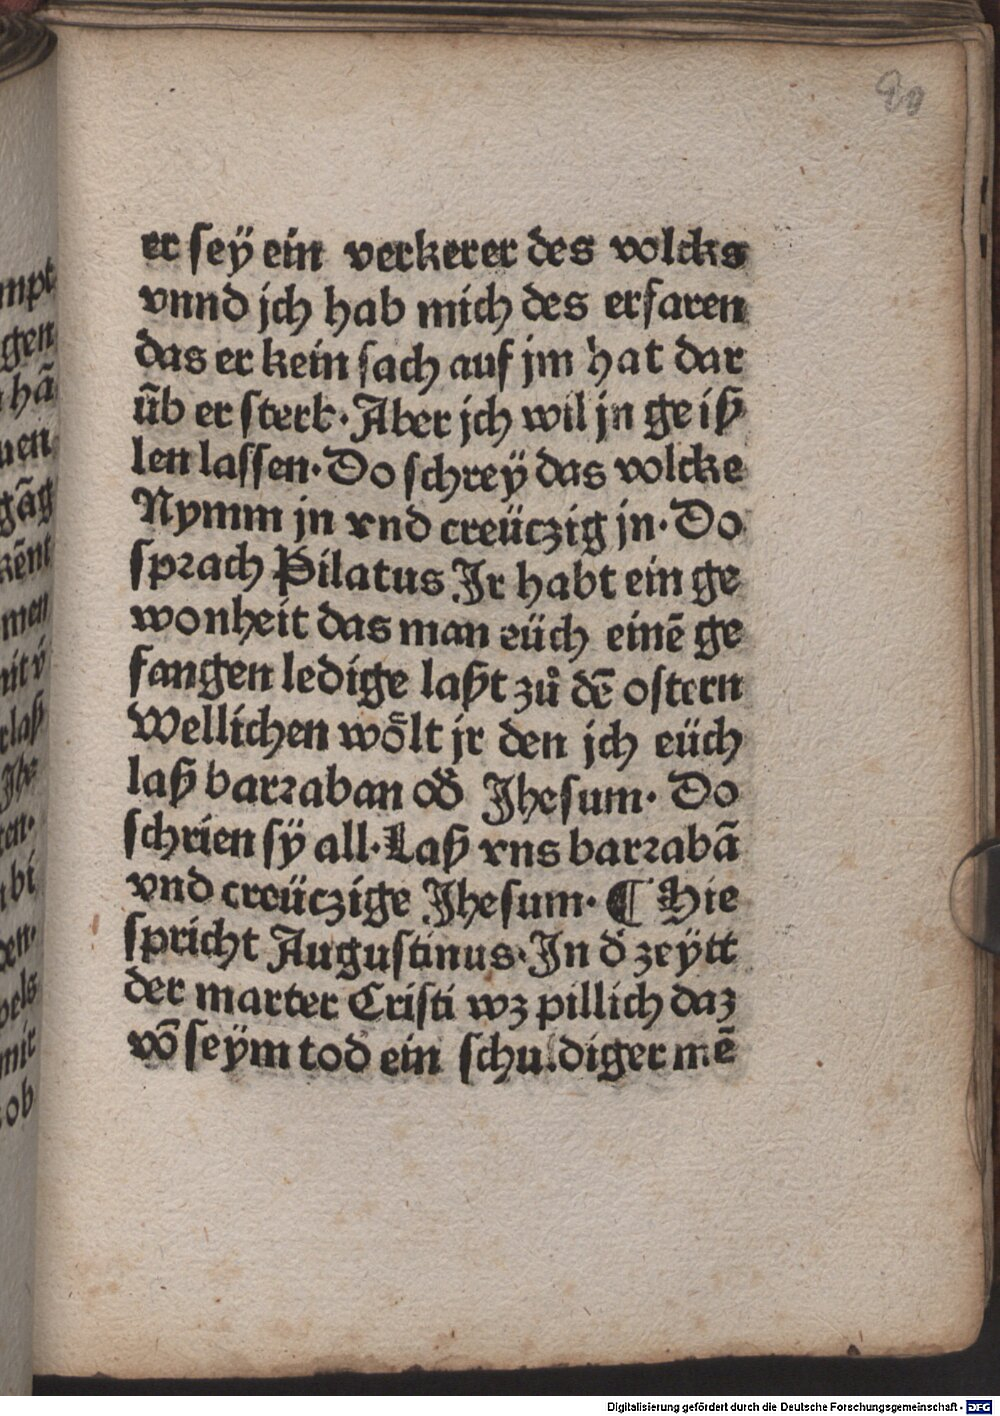 90
er sey ein verkerer des volcks
vnnd jch hab mich des erfaren
das er kein sach auf jm hat dar
ūb er sterb. Aber jch wil jn geiß
len lassen. Do schrey das volcke
Nymm jn vnd creüczig jn. Do
sprach Pilatus Jr habt ein ge
wonheit das man eüch einē ge
fangen ledige laßt zů dē ostern
Wellichen woͤlt jr den jch eüch
laß barraban od̕ Jhesum. Do
schrien sÿ all. Laß vns barrabā
vnd creüczige Jhesum. ¶ Hie
spricht Augustinus. Jn d̕ zeÿtt
der marter Cristi wz pillich daz
vō seÿm tod ein schuldiger mē
Digitalisierung gefördert durch die Deutsche Forschungsgemeinschaft - DFG